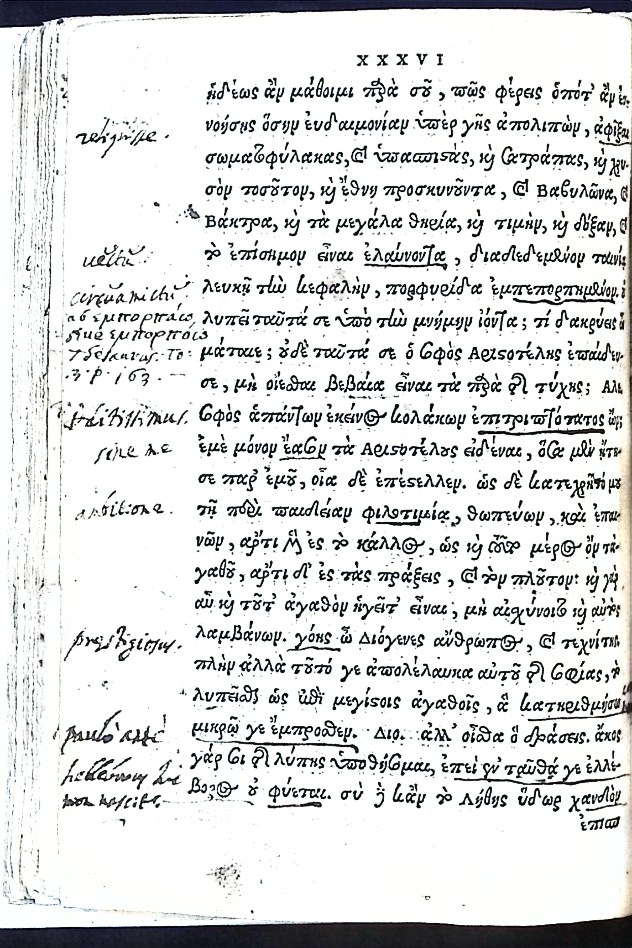 XXXVI
ἡδέως ἂν μάθοιμι παρὰ σοῦ, πῶς φέρεις ὁπότ' ἂν ἐν-
νοήσῃς ὅσην ευδαιμονίαν ὑπὲρ γῆς ἀπολιπὼν, ἀφῖξαι
σωματοφύλακας, καὶ ὑπασπιστὰς, καὶ σατράπας, καὶ χρυ-
σὸν τοσοῦτον, καὶ ἔθνη προσκυνοῦντα, καὶ Βαβυλῶνα, καὶ
Βάκτρα, καὶ τὰ μεγάλα θηρία, καὶ τιμὴν, καὶ δόξαν, καὶ
τὸ ἐπίσημον εἶναι ἐλαύνοντα, διαδεδεμένον ταινίᾳ
λευκῇ τὴν κεφαλὴν, πορφυρίδα ἐμπεπορπημένον. οὐ
λυπεῖ ταῦτά σε ὑπὸ τὴν μνήμην ἰόντα; τί δακρύεις ὦ
μάταιε; οὐδὲ ταῦτά σε ὁ σοφὸς Αριστοτέλης ἐπαίδευ-
σε, μὴ οἴεσθαι βεβαία εἶναι τὰ παρὰ τῆς τύχης; Αλε.
σοφὸς ἁπάντων ἐκεῖνος κολάκων ἐπιτριπτότατος ὤν;
ἐμὲ μόνον ἔασον τὰ Αριστοτέλους εἰδέναι, ὅσα μὲν ᾔτη-
σε παρ' ἐμοῦ, οἷα δὲ ἐπέστελλεν. ὡς δὲ κατεχρῆτό μου
τῇ περὶ παιδείαν φιλοτιμίᾳ, θωπεύων, καὶ ἐπαι-
νῶν, ἄρτι μὲν ἐς τὸ κάλλος, ὡς καὶ τοῦτο μέρος ὂν τἀ-
γαθοῦ, ἄρτι δ' ἐς τὰς πράξεις, καὶ τὸν πλοῦτον: καὶ γὰρ
αὖ καὶ τοῦτ' ἀγαθὸν ἡγεῖτ' εἶναι, μὴ αἰσχύνοιτο καὶ αὐτὸς
λαμβάνων. γόης ὦ Διόγενες ἄνθρωπος, καὶ τεχνίτης.
πλὴν ἀλλὰ τοῦτό γε ἀπολέλαυκα αὐτοῦ τῆς σοφίας, τὸ
λυπεῖσθαι ὡς ἐπὶ μεγίστοις ἀγαθοῖς, ἃ κατηριθμήσω
μικρῷ γε ἔμπροσθεν. Διο. ἀλλ' οἶσθα ὃ δράσεις. ἄκος
γάρ σοι τῆς λύπης ὑποθήσομαι, ἐπεὶ οὖν ταῦθά γε ἑλλέ-
βορος οὐ φύεται. σὺ δὲ κἂν τὸ Λήθης ὕδωρ χανδὸν
ἐπισπ
circumamictum
ab ἐμπορπάω,
sive ἐμπορπόω
Thesaurus. To:
3. p. 163.
sine me
ambitione.
præstigiosus.
paulò antè
helleborus hic
non nascitur.